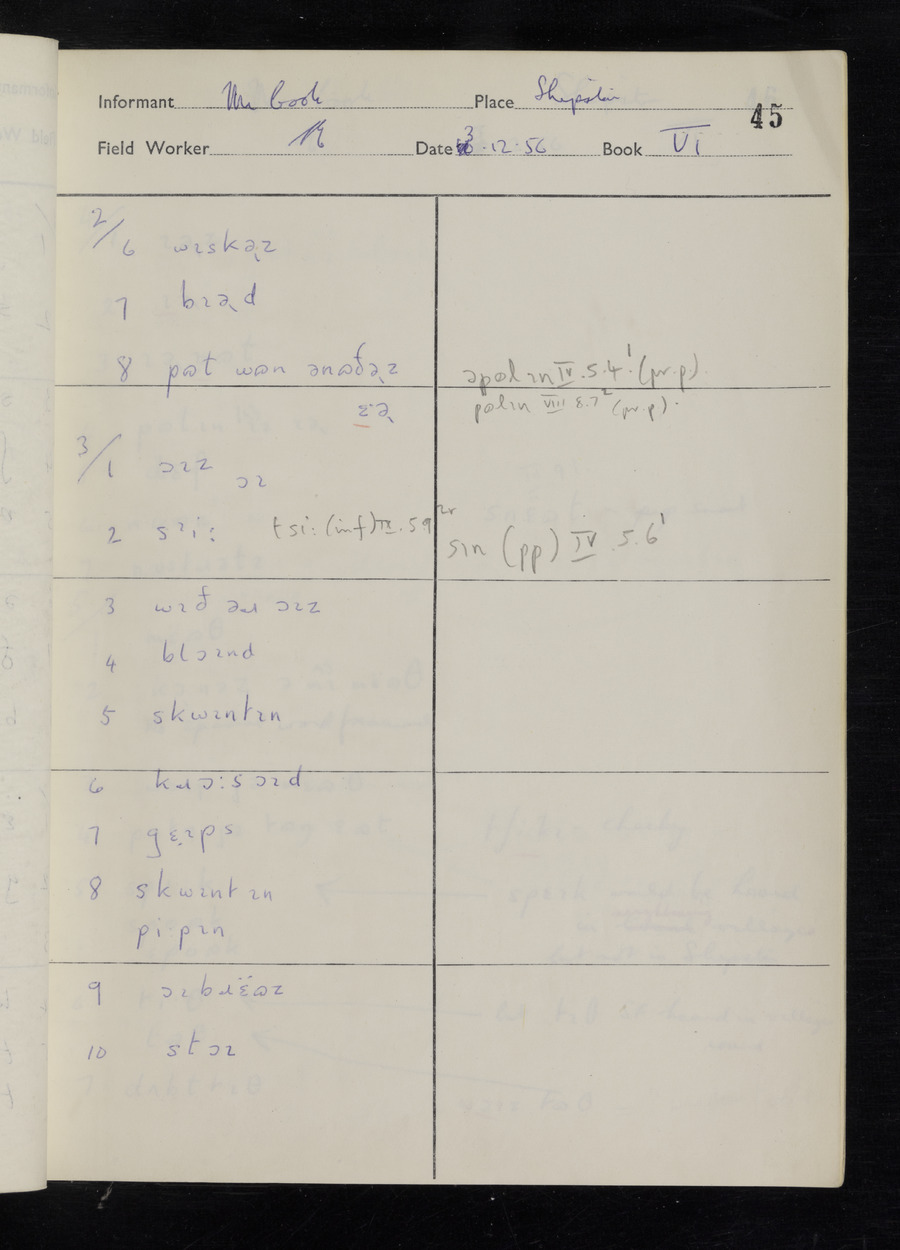 Informant Mr Cook Place Shepston
45
Field Worker Date 3 ·12·56 Book VI
2/6 wɪskə̢z
7 bɪə̢d
8 pɷt wɷn ənɷðə̢z əpɷlɪn IV.5.4¹ (pr.p).
ɛə̢ pɷlɪn VIII 8.7² (pr.p).
3/1 ɔɪz ɔɪ
2 sɪi: tsi: (inf) IX.5.9 sɪn (pp) IV.5.6¹
3 wɪð əɹ ɔɪz
4 blɔɪnd
5 skwɪntɪn
6 kɹɔ:sɔɪd
7 gɛ̣ɪps
8 skwɪntɪn
pi:pɪn
9 ɔɪbɹɛ̈ɷz
10 stɔɪ